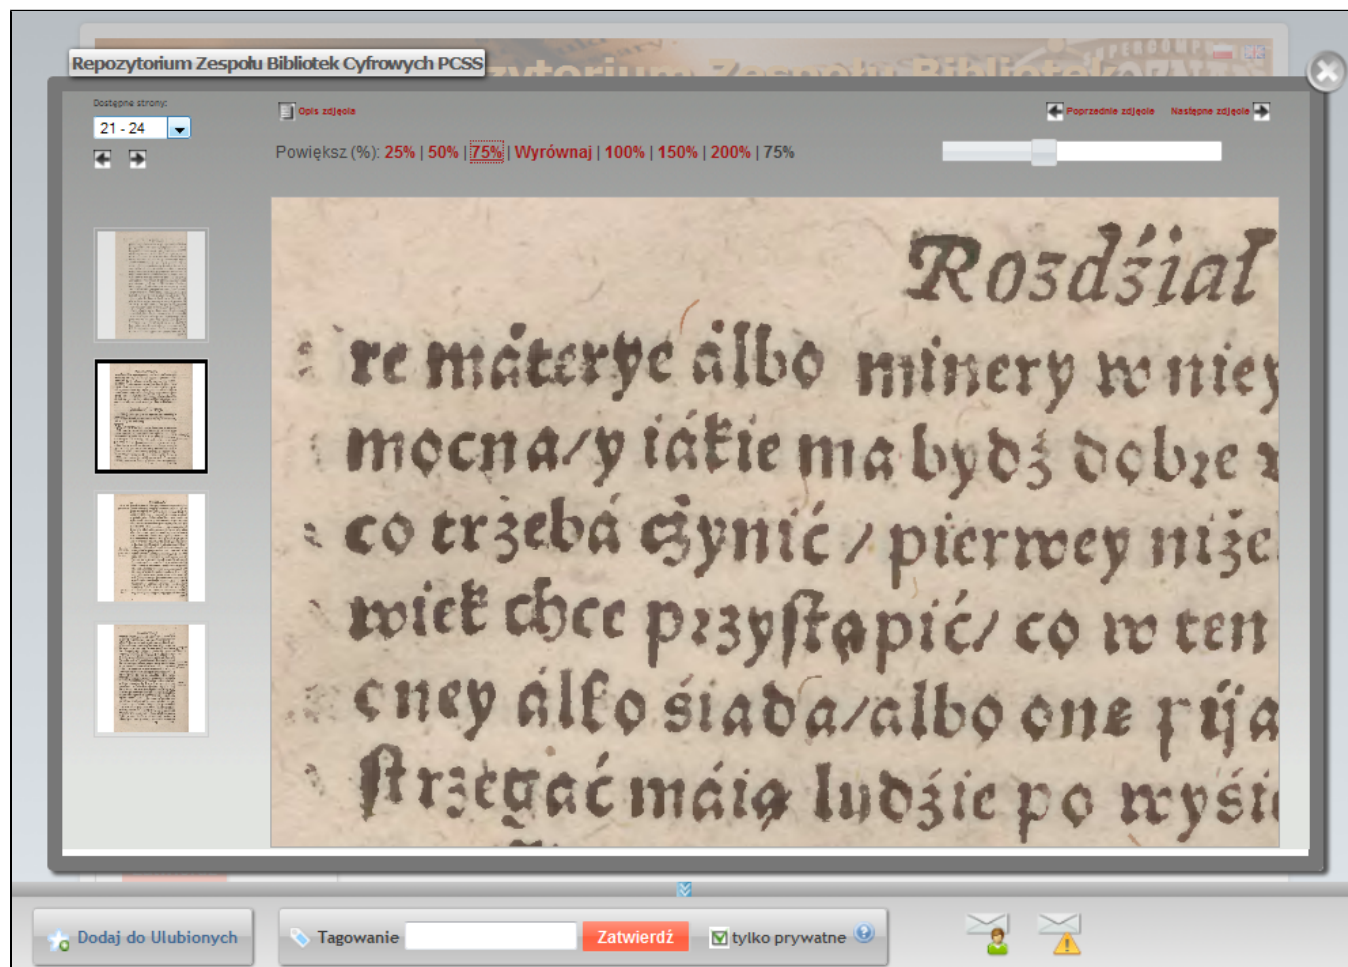 Repozytorium Zespołu Bibliotek Cyfrowych PCSS
Dostępne strony:
21 - 24
Opis zdjęcia
Poprzednie zdjęcie Następne zdjęcie
Powiększ (%): 25% | 50% | 75% | Wyrównaj | 100% | 150% | 200% | 75%
Rozdźiał
re máterye álbo minery w niey
mocna/y iákie ma bydź dobrze
co trzebá czynić/ pierwey niże
wiek chce przyſtąpić/ co w ten
cney álko śiada/albo one
ſtrzegáć máią ludźie po wyśi
Dodaj do Ulubionych
Tagowanie
Zatwierdź
tylko prywatne